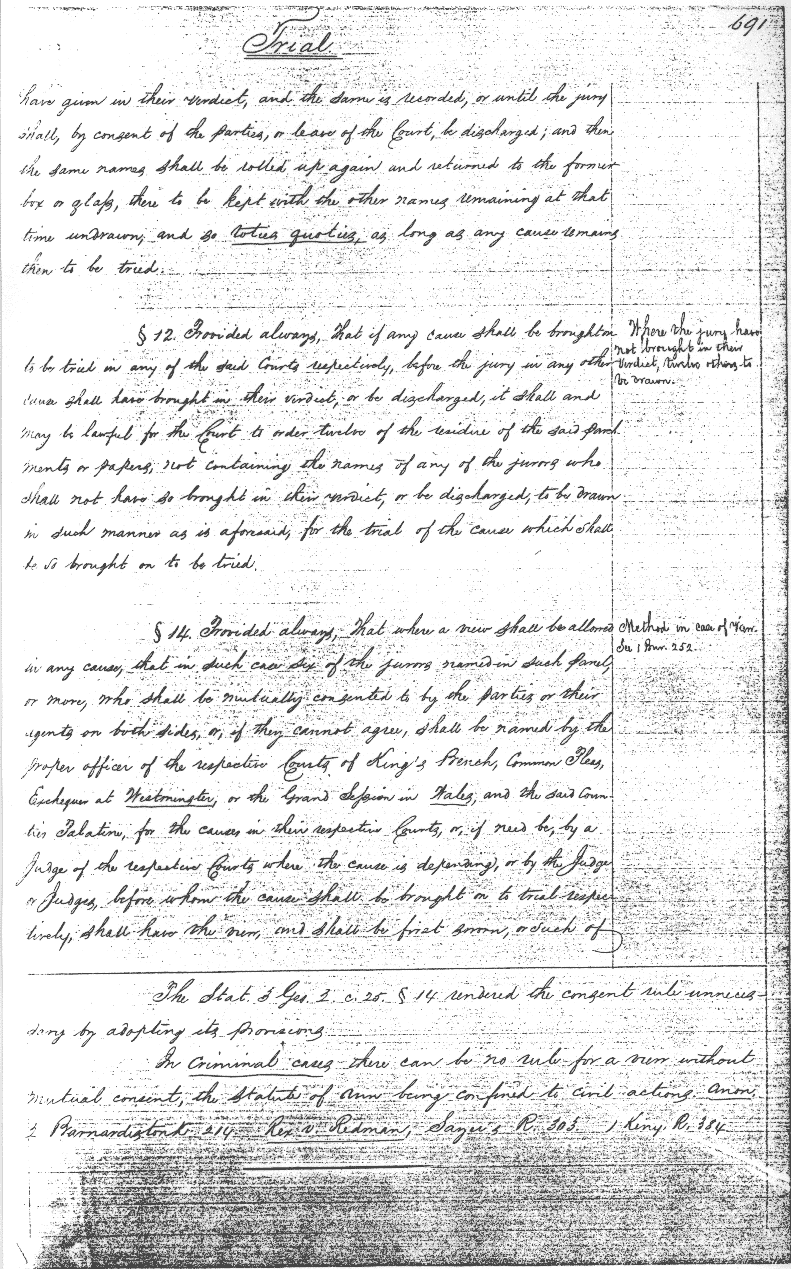 691
Trial
have given in their verdict, and the same is recorded, or until the jury
shall, by consent of the parties, or leave of the Court, be discharged; and then
the same names shall be rolled up again and returned to the former
box or glass, there to be kept with the other names remaining at that
time undrawn, and so toties quoties, as long as any cause remains
then to be tried.
§ 12. Provided always, That if any cause shall be brought on
to be tried in any of the said Courts respectively, before the jury in any other
cause shall have brought in their verdict, or be discharged, it shall and
may be lawful for the Court to order twelve of the residue of the said parch
ments or papers, not containing the names of any of the jurors who
shall not have so brought in their verdict, or be discharged, to be drawn
in such manner as is aforesaid, for the trial of the cause which shall
be so brought on to be tried.
Where the jury have
not brought in their
Verdict, twelve others to
be drawn.
§ 14. Provided always, That where a view shall be allowed
in any cause, that in such case six of the jurors named in such panel,
or more, who shall be mutually consented to by the parties or their
agents on both sides, or, if they cannot agree, shall be named by the
proper officer of the respective Courts of King's Bench, Common Pleas,
Exchequer at Westminster, or the Grand Session in Wales, and the said Coun-
ties Palatine, for the causes in their respective Courts, or, if need be, by a
Judge of the respective Courts where the cause is depending, or by the Judge
or Judges, before whom the cause shall be brought on to trial respec-
tively, shall have the view, and shall be first sworn, or such of
Method in case of View.
See 1 Bur. 252
The Stat. 3 Geo. 2. c. 25. § 14 rendered the consent rule unneces-
sary by adopting its provisions
In Criminal cases there can be no rule for a view without
mutual consent, the Statute of Ann being confined to civil actions. Anon,
2 Barnardiston R. 214 Rex v Redman, Sayer's R. 303. 1 Keny. R. 384